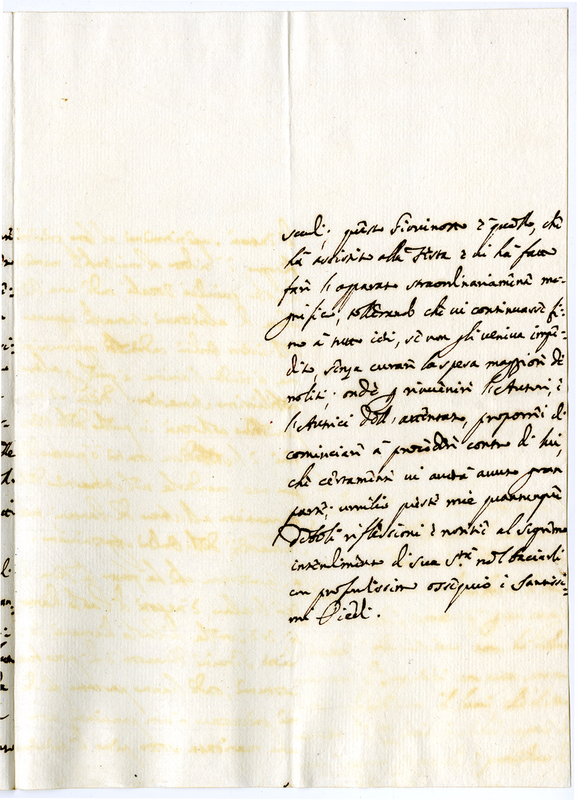 scudi; questo Fiorinotto è quello, che
hà assistito alla Festa e vi hà fatto
fare l'apparato straordinariamente ma-
gnifico, tollerando che vi continuasse fi-
no à tutto ieri, se non gli veniva impe-
dito, senza curare la spesa maggiore de
noliti; onde p rinvenire l'Autore, è
l'Autrice dell'attentato, proporrei di
cominciare à procedere contro di lui,
che certamente vi averà avuto gran
parte; umilio queste mie quantunque
deboli riflessioni e notizie al Supremo
intendimento di sua S.tà nel baciarle
con profondissimo ossequio i Santissi-
mi Piedi.